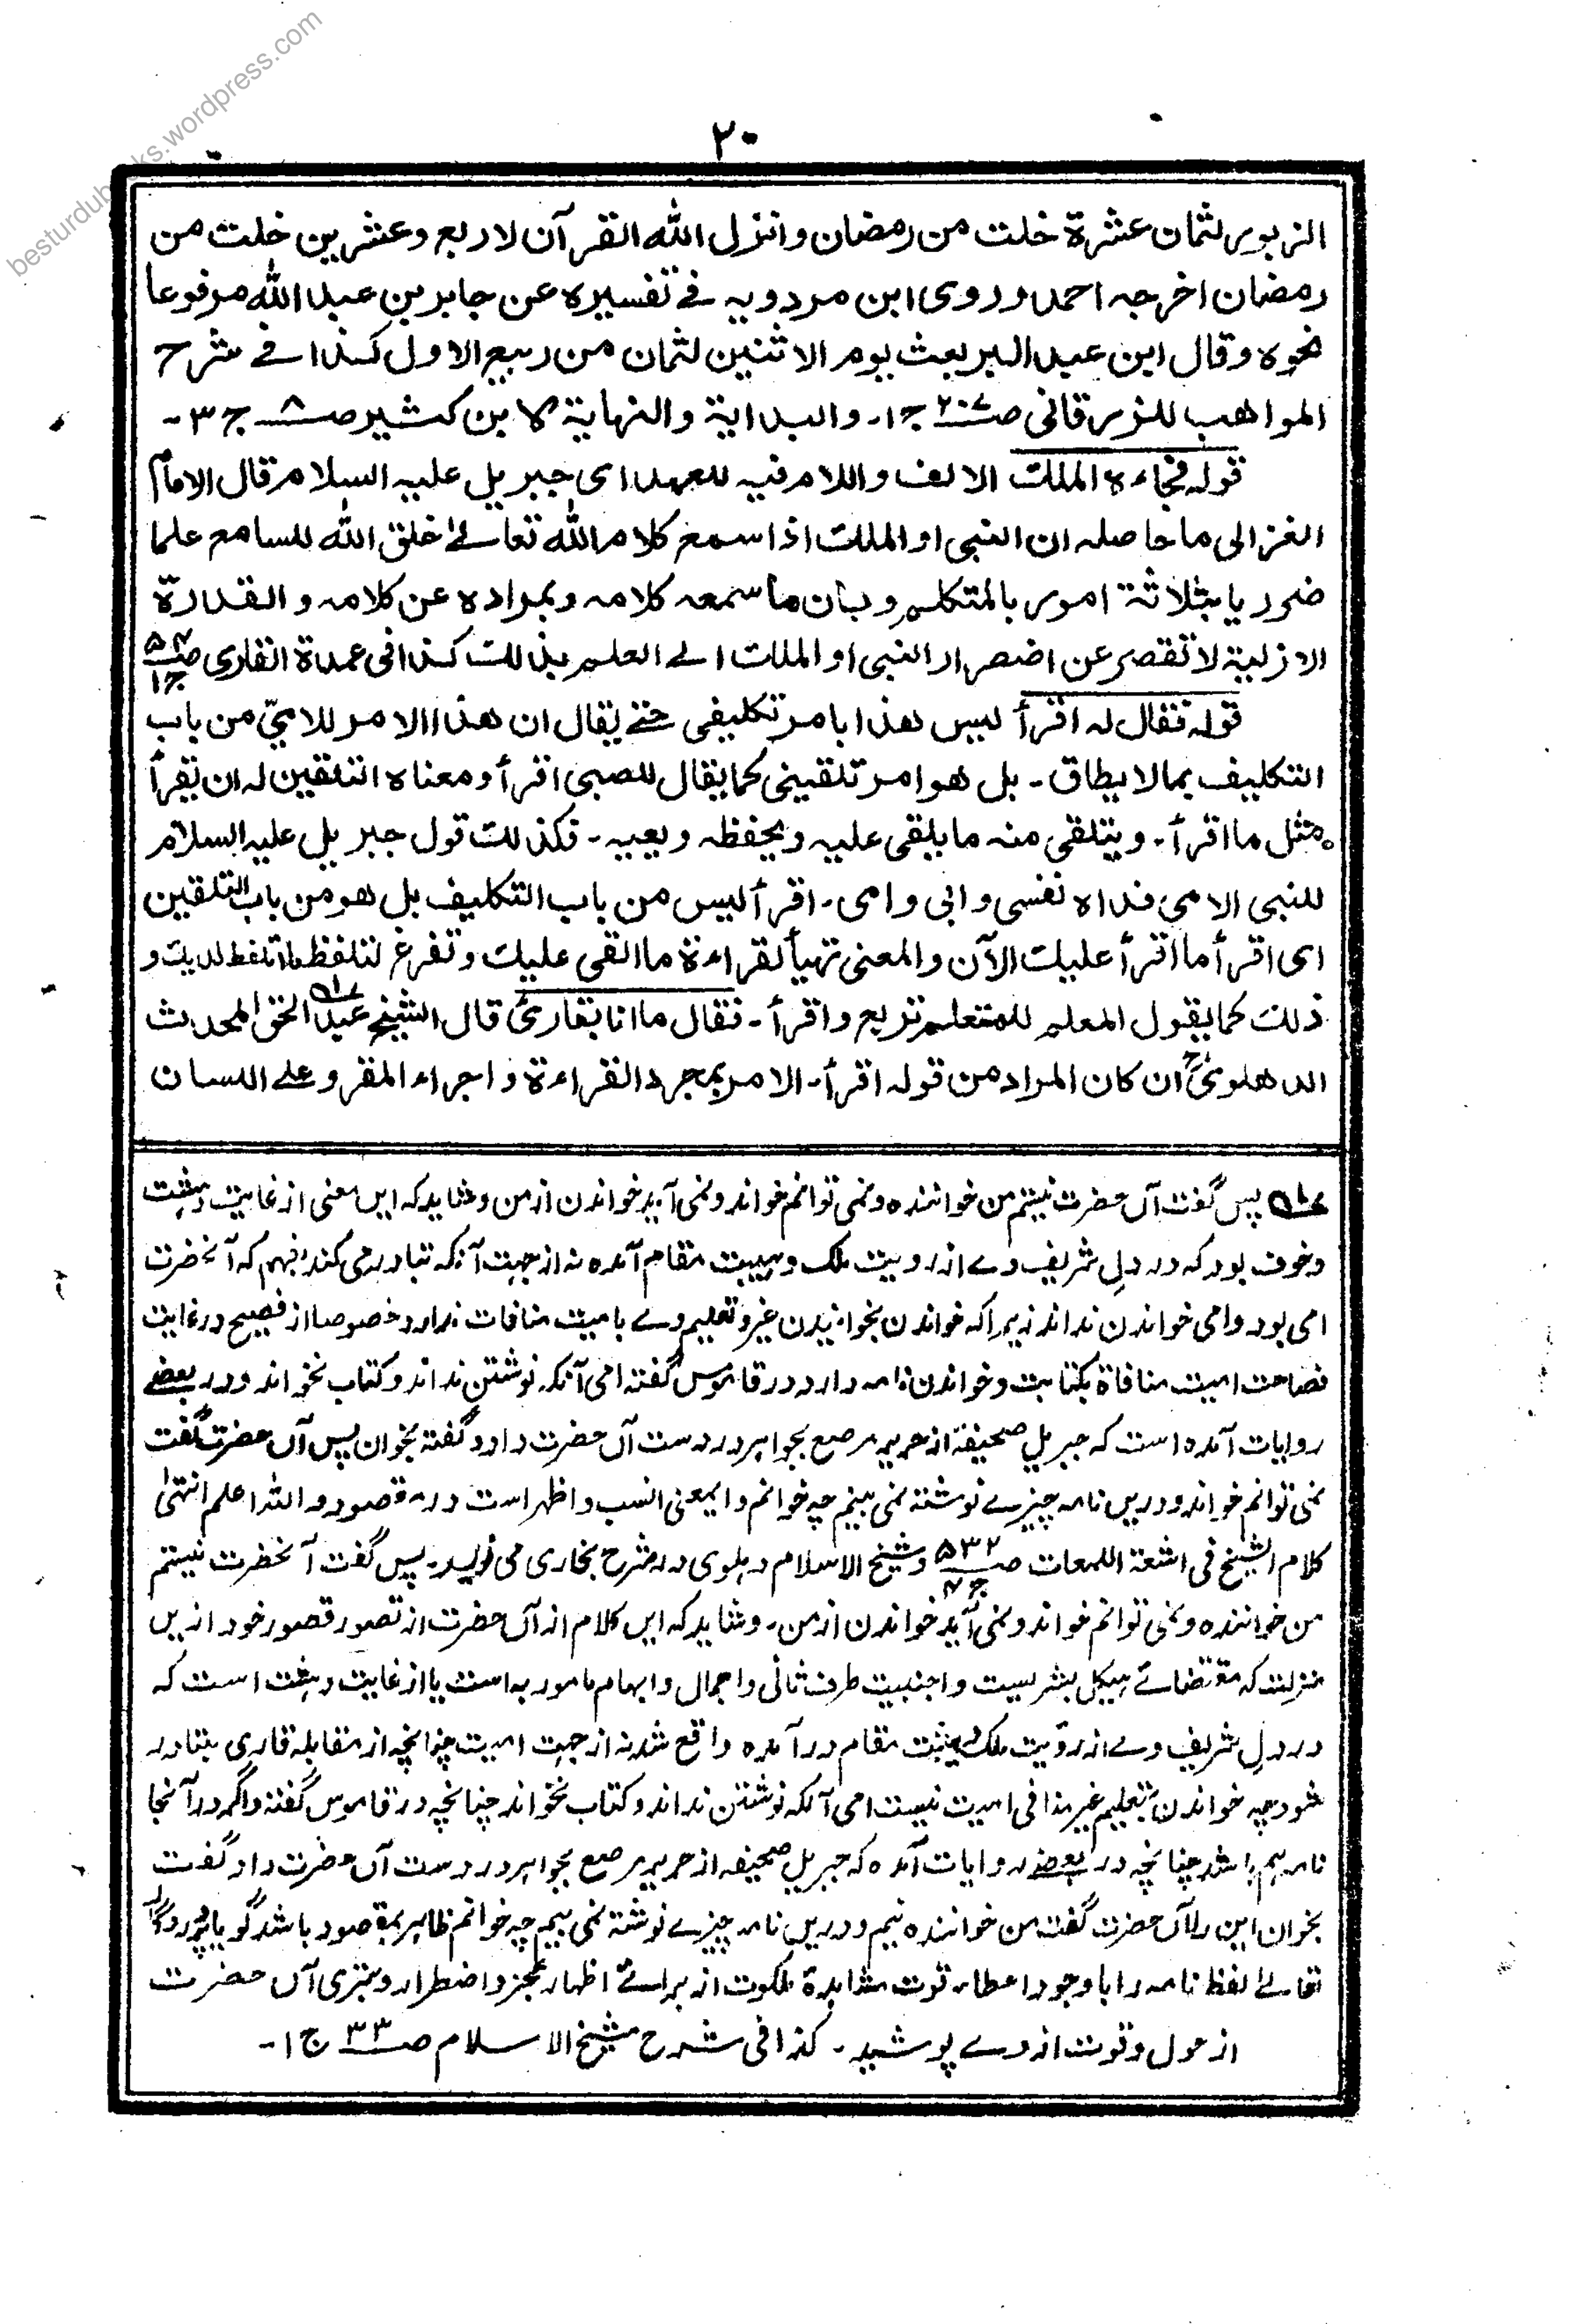 besturdubooks.wordpress.com
۲۰
الزبور لثمان عشرة خلت من رمضان وانزل الله القرآن لاربع وعشرين خلت من
رمضان اخرجه احمد وروى ابن مردويه في تفسيره عن جابر بن عبد الله مرفوعا
نحوه وقال ابن عبد البر بعث يوم الاثنين لثمان من ربيع الاول كذا في شرح
المواهب للزرقاني صـ۲۰۷ ج۱ ـ والبداية والنهاية لابن كثير صـ ج۳ ـ
قوله فجاءه الملك الالف واللام فيه للعهد اى جبريل عليه السلام قال الامام
الغزالى ما حاصله ان النبى او الملك اذا سمع كلام الله تعالے خلق الله للسامع علما
ضروريا بثلاثة امور بالمتكلم وبان ما سمعه كلامه وبمراده عن كلامه والقدرة
الازلية لا تقصر عن اضصرار النبى او الملك الے العلم بذلك كذا فى عمدة القارى صـ۵۴ ج۱
قوله فقال له اقرأ ليس هذا بامر تكليفى حتے يقال ان هذا الامر للامىّ من باب
التكليف بما لا يطاق ـ بل هو امر تلقينى كما يقال للصبى اقرأ ومعناه التلقين له ان يقرأ
مثل ما اقرأ ـ ويتلقى منه ما يلقى عليه ويحفظه ويعيه ـ فكذلك قول جبريل عليه السلام
للنبى الامي فداه نفسى وابى وامى ـ اقرأ ليس من باب التكليف بل هو من باب التلقين
اى اقرأ ما اقرأ عليك الآن والمعنى تهيأ لقراءة ما القى عليك وتفرغ لتلفظ ما تلفظ لديك و
ذلك كما يقول المعلم للمتعلم تربع واقرأ ـ فقال ما انا بقارئ قال الشيخ عبد الحق المحدث
الدهلوىؒ ان كان المراد من قوله اقرأ ـ الامر بمجرد القراءة واجراء المقرو علے اللسان
پس گفت آں حضرت نیستم من خوانندہ و نمی توانم خواند و نمی آید خواندن از من و شاید کہ ایں معنی از غایت دہشت
و خوف بود کہ در دلِ شریف وے از رویت ملک و ہیبت مقام آمدہ نہ از جہت آنکہ تبادر می کند بفہم کہ آنحضرت
امی بود و امی خواندن نداند زیرا کہ خواندن بخوانیدن غیر و تعلیم وے با امیت منافات ندارد خصوصا از فصیح در غایت
فصاحت امیت منافاة بکتابت و خواندن نامہ دارد در قاموس گفتہ امی آنکہ نوشتن نداند و کتاب نخواند و در بعضے
روایات آمدہ است کہ جبریل صحیفۂ از حریر مرصع بجواہر در دست آں حضرت داد و گفتہ بخوان پس آں حضرت گفت
نمی توانم خواند و دریں نامہ چیزے نوشتہ نمی بینم چہ خوانم و ایمعنی انسب و اظہر است در مقصود واللہ اعلم انتہیٰ
کلام الشیخ فی اشعۃ اللمعات صـ۵۳۲ ج۴ و شیخ الاسلام دہلوی در شرح بخاری می نویسد ـ پس گفت آنحضرت نیستم
من خوانندہ و نمی توانم خواند و نمی آید خواندن از من ـ و شاید کہ ایں کلام از آں حضرت از تصور قصور خود ازیں
منزلت کہ مقتضائے ہیکل بشریست و اجنبیت طرف ثانی و اجمال و ابہام مامور بہ است یا از غایت دہشت است کہ
در دلِ شریف وے از رؤیت ملک و ہیبت مقام در آمدہ واقع شد نہ از جہت امیت چنانچہ از مقابلہ قاری بتبادر
شود چہ خواندن بتعلیم غیر منافی امیت نیست امی آنکہ نوشتن نداند و کتاب نخواند چنانچہ در قاموس گفتہ و اگر در آنجا
نامہ ہم باشد چنانچہ در بعضے روایات آمدہ کہ جبریل صحیفہ از حریر مرصع بجواہر در دست آں حضرت داد گفت
بخوان این را آں حضرت گفت من خوانندہ نیم و دریں نامہ چیزے نوشتہ نمی بینم چہ خوانم ظاہر بمقصود باشد گویا پروردگار
تعالےٰ لفظ نامہ را با وجود اعطاء قوت مشاہدۂ ملکوت از برائے اظہار عجز و اضطرار و تبری آں حضرت
از حول و قوت از وے پوشید ـ کذا فی شرح شیخ الاسلام صـ۳۳ ج۱ ـ